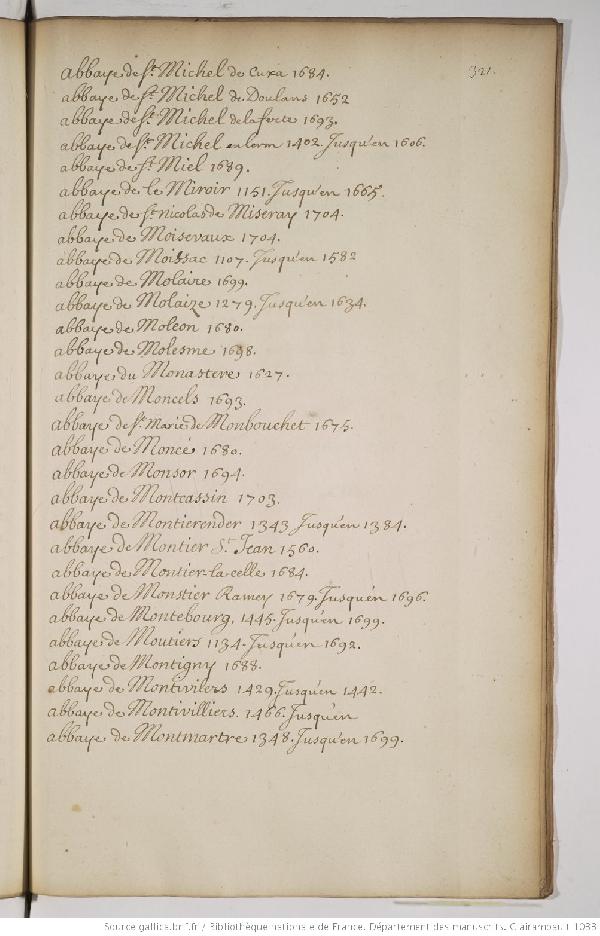 321.
abbaye de st. Michel de Cuxa 1684.
abbaye de st. Michel de Doulans 1652
abbaye de st. Michel de la ferte 1693.
abbaye de st. Michel en lerm 1402. Jusqu'en 1606.
abbaye de st. Miel 1689.
abbaye de le Miroir 1151. Jusqu'en 1665.
abbaye de st. nicolas de Miseray 1704.
abbaye de Moisevaux 1704.
abbaye de Moissac 1107. Jusqu'en 1582
abbaye de Molaire 1699.
abbaye de Molaize 1279. Jusqu'en 1634.
abbaye de Moleon 1680.
abbaye de Molesme 1698.
abbaye du Monastere 1627.
abbaye de Moncels 1693.
abbaye de ste. Marie de Monbouchet 1675.
abbaye de Moncé 1680.
abbaye de Monsor 1694.
abbaye de Montcassin 1703.
abbaye de Montierender 1343 Jusqu'en 1384.
abbaye de Montier St. Jean 1560.
abbaye de Montier-la-celle 1684.
abbaye de Monstier Ramey 1679. Jusqu'en 1696.
abbaye de Montebourg, 1445. Jusqu'en 1699.
abbaye de Moutiers 1134. Jusqu'en 1692.
abbaye de Montigny 1688.
abbaye de Montivilers 1429. Jusqu'en 1442.
abbaye de Montivilliers. 1466. Jusqu'en
abbaye de Montmartre 1348. Jusqu'en 1699.
Source gallica.bnf.fr / Bibliothèque nationale de France. Département des manuscrits. Clairambault 1088